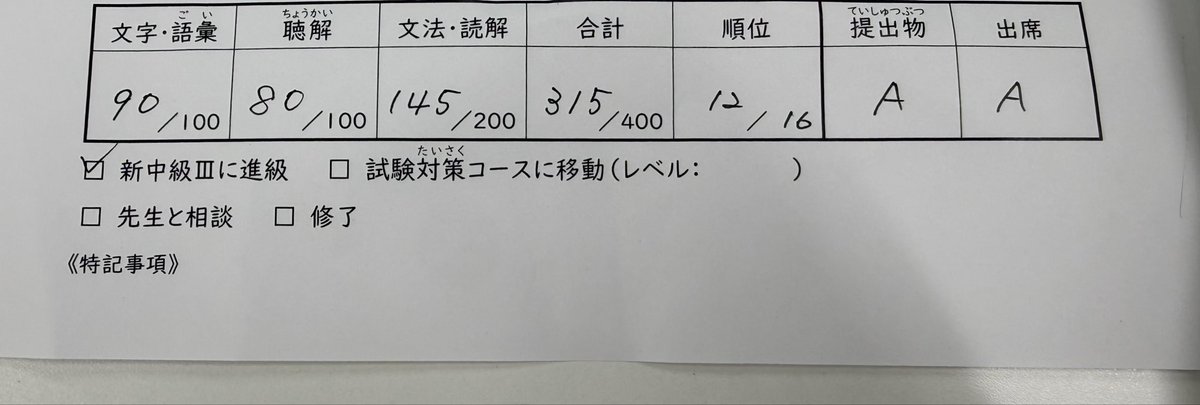 文字・語彙 聴解 文法・読解 合計 順位 提出物 出席
ごい ちょうかい ていしゅつぶつ
90/100 80/100 145/200 315/400 12/16 A A
☑ 新中級Ⅲに進級 □ 試験対策コースに移動(レベル: )
たいさく
□ 先生と相談 □ 修了
《特記事項》